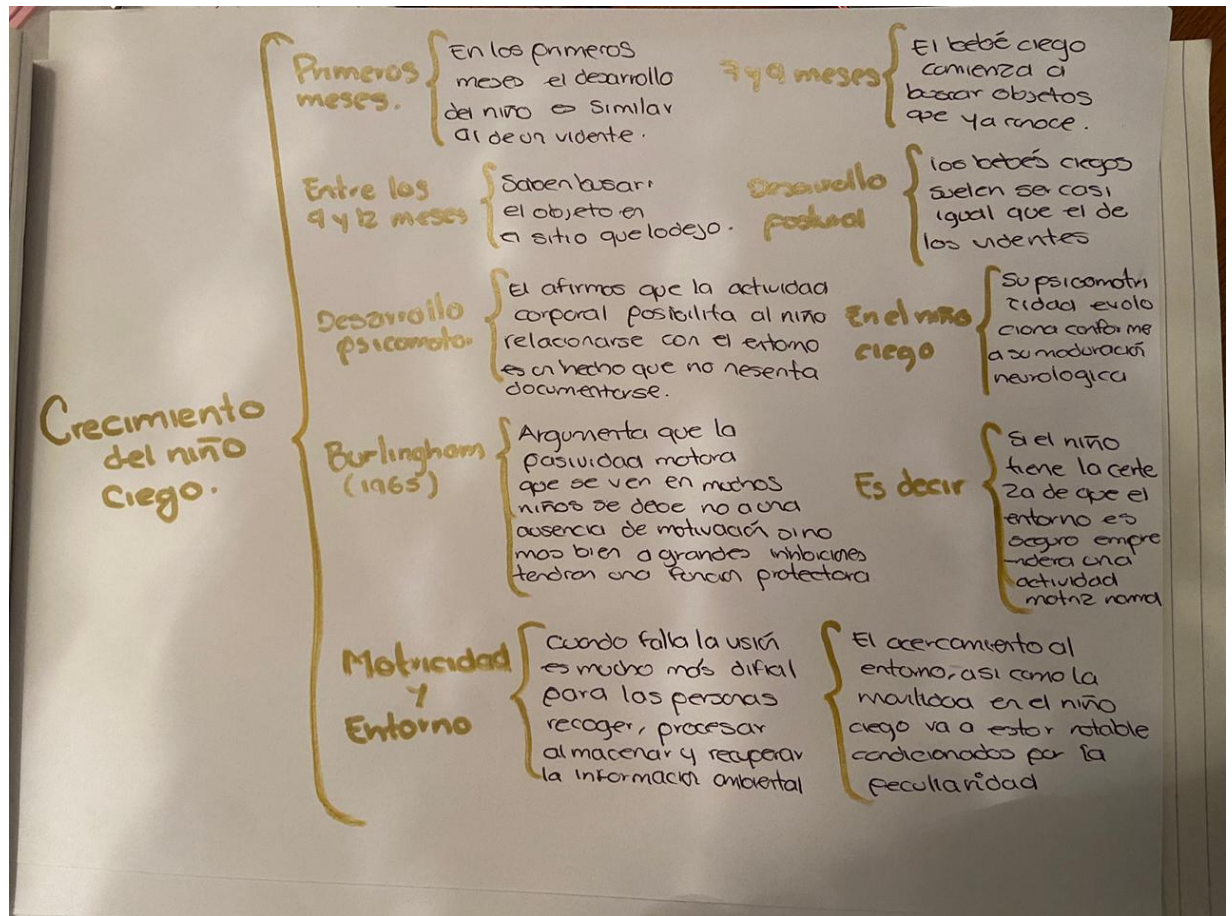 Crecimiento
del niño
ciego.
Primeros
meses.
En los primeros
meses el desarrollo
del niño es similar
al de un vidente.
7 y 9 meses
El bebé ciego
comienza a
buscar objetos
que ya conoce.
Entre los
9 y 12 meses
Saben busar
el objeto en
el sitio que lo dejo.
Desarrollo
postural
los bebés ciegos
suelen ser casi
igual que el de
los videntes
Desarrollo
psicomotor
El afirmos que la actividad
corporal posibilita al niño
relacionarse con el entorno
es un hecho que no nesenta
documentarse.
En el niño
ciego
Su psicomotri
cidad evolo
ciona conforme
a su maduración
neurologica
Burlingham
(1965)
Argumenta que la
pasividad motora
que se ven en muchos
niños se debe no a una
ausencia de motivación sino
mas bien a grandes inhibiciones
tendran una función protectora
Es decir
Si el niño
tiene la certe
za de que el
entorno es
seguro empre
ndera una
actividad
motriz normal
Motricidad
y
Entorno
Cuando falla la visión
es mucho más difial
para las personas
recoger, procesar
almacenar y recuperar
la información ambiental
El acercamiento al
entorno, asi como la
en el niño
ciego va a estar notable
condicionados por la
peculiaridad